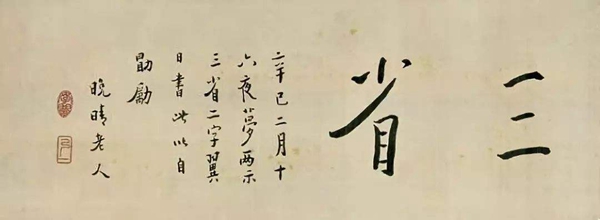 三省
辛巳二月十
六夜夢兩示
三省二字翼
日書此以自
勗勵
晚晴老人